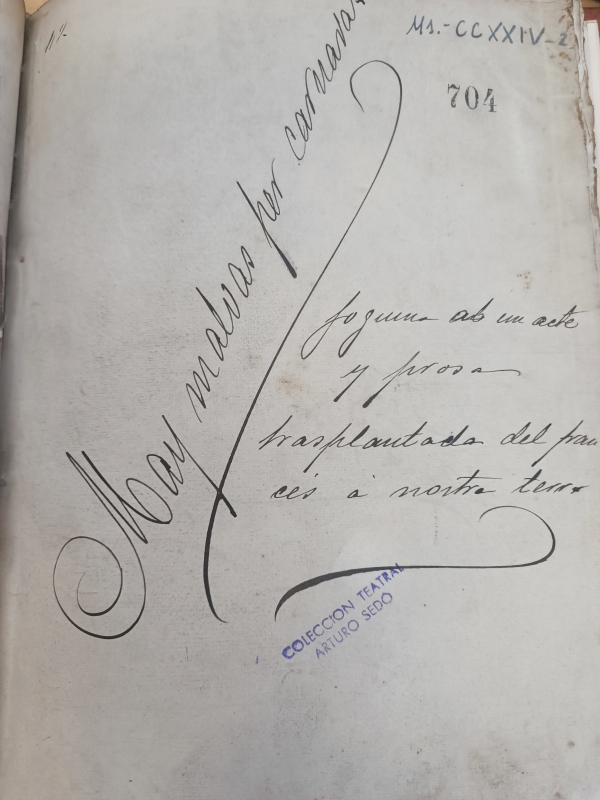 Ms.-CCXXIV-2
704
May malvas per carnada.
Joguina ab un acte
y prosa
trasplantada del fran
cés á nostra terra
COLECCION TEATRAL
ARTURO SEDÓ